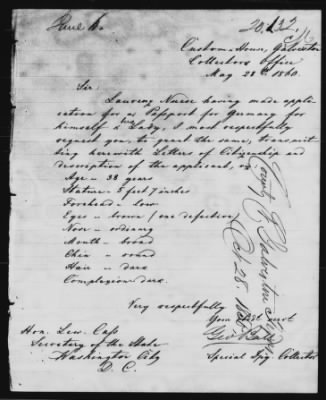 20.132
Custom House, Galveston
Collectors Office
May 28th 1860.
Sir
Laurenz Nurse having made appli-
cation for a Passport for Germany for
himself & his Lady, I most respectfully
request you, to grant the same, transmit-
ting herewith Letters of Citizenship and
description of the applicant, viz
Age – 38 years
Stature – 5 feet 7 inches
Forehead – low
Eyes – brown (one defective)
Nose – ordinary
Mouth – broad
Chin – round
Hair – dark
Complexion dark.
Very respectfully
Your obdt servt
Geo
Special Dpty Collector
Hon. Lew. Cass
Secretary of the State
Washington City
D. C.
County of Galveston
Oct 28